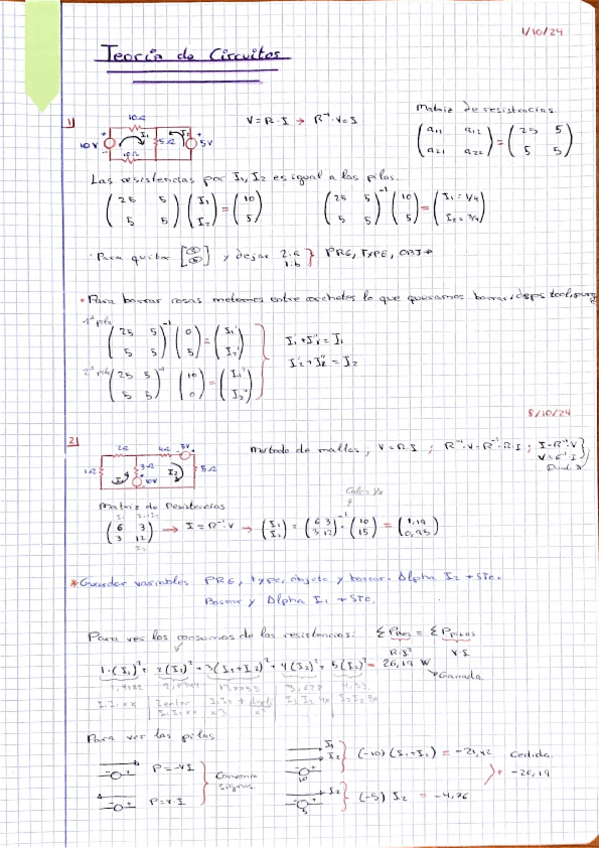 1/10/24
Teoría de Circuitos
1) 10Ω 10V I₁ 5Ω I₂ 5V 10Ω
V = R · I → R⁻¹ · V = I
Matriz de resistencias
(a₁₁ a₁₂ / a₂₁ a₂₂) = (25 5 / 5 5)
Las resistencias por I₁, I₂ es igual a las pilas.
(25 5 / 5 5) (I₁ / I₂) = (10 / 5)
(25 5 / 5 5)⁻¹ (10 / 5) = (I₁ = 1/4 / I₂ = 3/4)
· Para quitar y dejar PRG, TYPE, OBJ→
* Para borrar cosas metemos entre corchetes lo que queramos borrar, tool, purg
1ª pila (25 5 / 5 5)⁻¹ (0 / 5) = (I₁' / I₂')
I₁' + I₁'' = I₁
I₂' + I₂'' = I₂
2ª pila (25 5 / 5 5)⁻¹ (10 / 0) = (I₁'' / I₂'')
8/10/24
2) 2Ω 4Ω 5V 1Ω 3Ω 10V I₁ I₂ 5Ω
Metodo de mallas ; V = R I ; R⁻¹ · V = R⁻¹ · R I ; I = R⁻¹ · V
Matriz de Resistencias
(6 3 / 3 12) → I = R⁻¹ · V → (I₁ / I₂) = (6 3 / 3 12)⁻¹ · (10 / 15) = (1,19 / 0,95)
* Guardar variables PRG, type, objeto y borrar. Alpha I₂ + STO.
Borrar y Alpha I₁ + STO.
Para ver los consumos de las resistencias:
R·I² V·I
1·(I₁)² + 2(I₁)² + 3(I₁+I₂)² + 4(I₂)² + 5(I₂)² = 26,19 W
Ganada
Para ver las pilas
P = -V I
P = V · I
I₁ I₂ 10 (-10)(I₁+I₂) = -21,42 Cedida
I₂ 5 (-5) I₂ = -4,76
-26,19